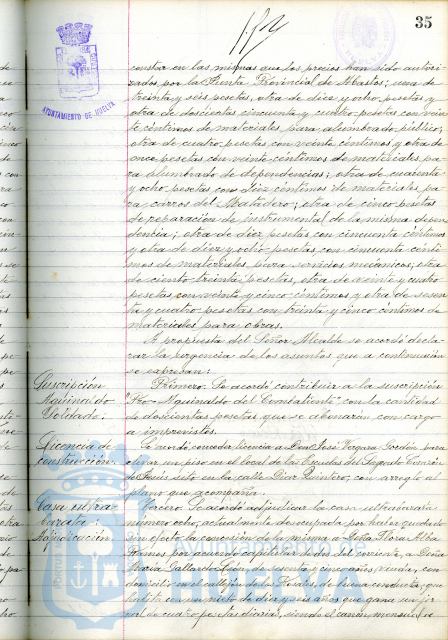 35
AYUNTAMIENTO DE HUELVA
constar en las mismas que los precios han sido autori-
zados por la Junta Provincial de Abastos; una de
treinta y seis pesetas, otra de diez y ocho pesetas y
otra de doscientas cincuenta y cuatro pesetas con vein
te céntimos de materiales para alumbrado público;
otra de cuatro pesetas con veinte céntimos y otra de
once pesetas con veinte céntimos de materiales pa
ra alumbrado de dependencias; otra de cuarenta
y ocho pesetas con diez céntimos de materiales pa
ra carros del Matadero; otra de cinco pesetas
de reparación de instrumental de la misma depen
dencia; otra de diez pesetas con cincuenta céntimos
y otra de diez y ocho pesetas con cincuenta cénti
mos de materiales para servicios mecánicos; otra
de ciento treinta pesetas, otra de veinte y cuatro
pesetas con veinte y cinco céntimos y otra de sesen
ta y cuatro pesetas con treinta y cinco céntimos de
materiales para obras.
A propuesta del Señor Alcalde se acordó decla-
rar la urgencia de los asuntos que a continuación
se expresan:
Suscripción
Aguinaldo
Soldado.
Primero. Se acordó contribuir a la suscripción
"Pro-Aguinaldo del Combatiente" con la cantidad
de doscientas pesetas que se abonarán con cargo
a imprevistos.
Licencia de
construcción.
Se acordó conceder licencia a Don José Vergara Gordón para
elevar un piso en el local de las Escuelas del Sagrado Corazón
de Jesús sito en la calle Puerto, con arreglo al
plano que acompaña.
Casa ultra-
barata.
Adjudicación
Tercero. Se acordó adjudicar la casa ultrabarata
número ocho, actualmente desocupada por haber quedado
sin efecto la concesión de la misma a Doña Flora Alba
Ramos por acuerdo capitular de dos del corriente, a Doña
María Gallardo León, de sesenta y cinco años, viuda, con
domicilio en el callejón de los Rosales, de buena conducta, que
habita con un nieto de diez y seis años que gana un jor
nal de cuatro pesetas diarias, siendo el canon mensual